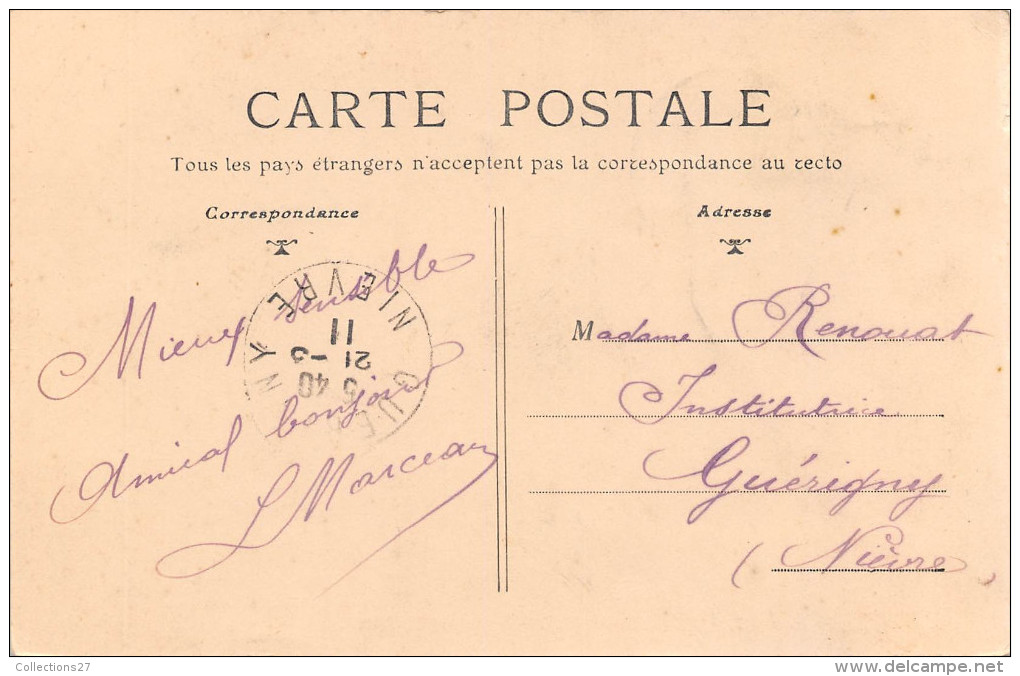 CARTE POSTALE
Tous les pays étrangers n'acceptent pas la correspondance au recto
Correspondance
Mieux sensible
Amical bonjour
L Marceau
NIEVRE
GUE NY
5 40
21 -3
11
Adresse
Madame Renouat
Institutrice
Guérigny
(Nièvre)
Collections27
www.delcampe.net